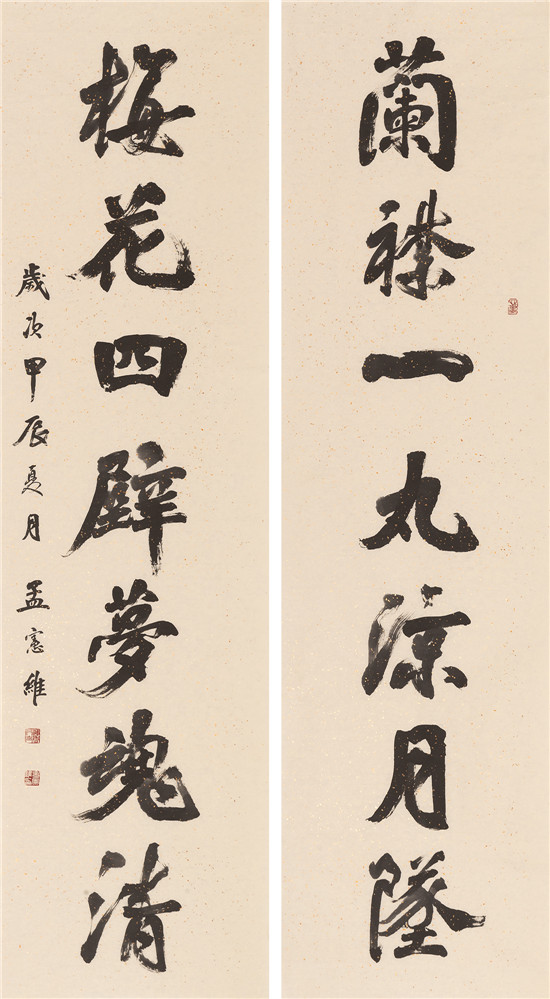 蘭襟一丸涼月墜
梅花四壁夢魂清
歲次甲辰夏月 孟憲維